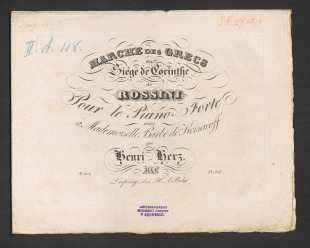 II. A. 118.
MARCHE DES GRECS
du
Siège de Corinthe
de
ROSSINI
Pour le Piano-Forte
à Mademoiselle Barbe de Korsacoff
par
Henri Herz.
Leipzig, chez H. A. Probst